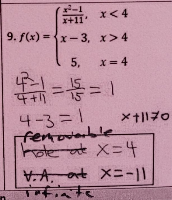 9. f(x) = { (x²-1)/(x+11), x < 4
x - 3, x > 4
5, x = 4
(4²-1)/(4+11) = 15/15 = 1
4-3 = 1 x+11≠0
removable
hole at x=4
V.A. at x=-11
infinite